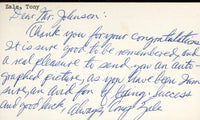 Zale, Tony
Dear Mr. Johnson:
Thank you for your congratulations
It is sure good to be remembered, and
a real pleasure to send you an auto-
graphed picture, as you have been
sure an avid fan of boxing. Success
and good luck, Always, Tony Zale